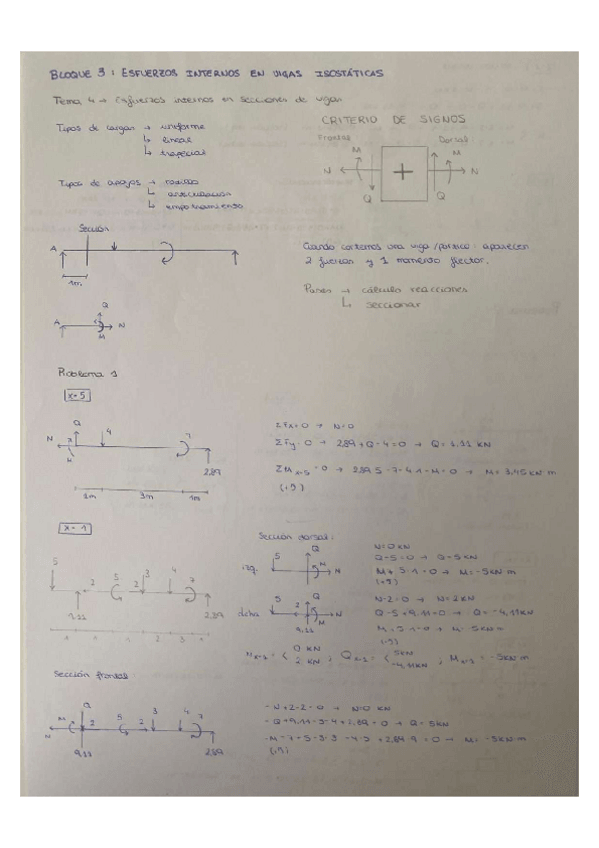 BLOQUE 3: ESFUERZOS INTERNOS EN VIGAS ISOSTÁTICAS
Tema 4 → Esfuerzos internos en secciones de vigas
Tipos de cargas → uniforme
↳ lineal
↳ trapecial
CRITERIO DE SIGNOS
Frontal
Dorsal
M
M
N
+
N
Q
Q
Tipos de apoyos → rodillo
↳ articulación
↳ empotramiento
Sección
A
1m
Cuando cortemos una viga/pórtico: aparecen
2 fuerzas y 1 momento flector.
Pasos → cálculo reacciones
↳ seccionar
A
Q
N
M
Problema 1
x=5
Q
4
7
N
2,89
1m
3m
1m
ΣFx=0 → N=0
ΣFy=0 → 2,89+Q-4=0 → Q=1,11 KN
ΣM x=5 =0 → 2,89·5-7-4·1-M=0 → M=3,45 KN m
(+↺)
x=1
5
2
5
2
3
4
7
9,11
2,89
Sección dorsal:
izq.
5
Q
N
M
N=0 KN
Q-5=0 → Q=5KN
M+5·1=0 → M=-5KN m
(+↺)
dcha
5
2
Q
M
N
9,11
N-2=0 → N=2KN
Q-5+9,11=0 → Q=-4,11KN
M+5·1=0 → M=-5KN m
(+↺)
0 KN
2 KN
5KN
-4,11KN
= -5KN m
Sección frontal
Q
M
2
5
2
3
4
7
N
9,11
2,89
-N+2-2=0 → N=0KN
-Q+9,11-3-4+2,89=0 → Q=5KN
(+↺)